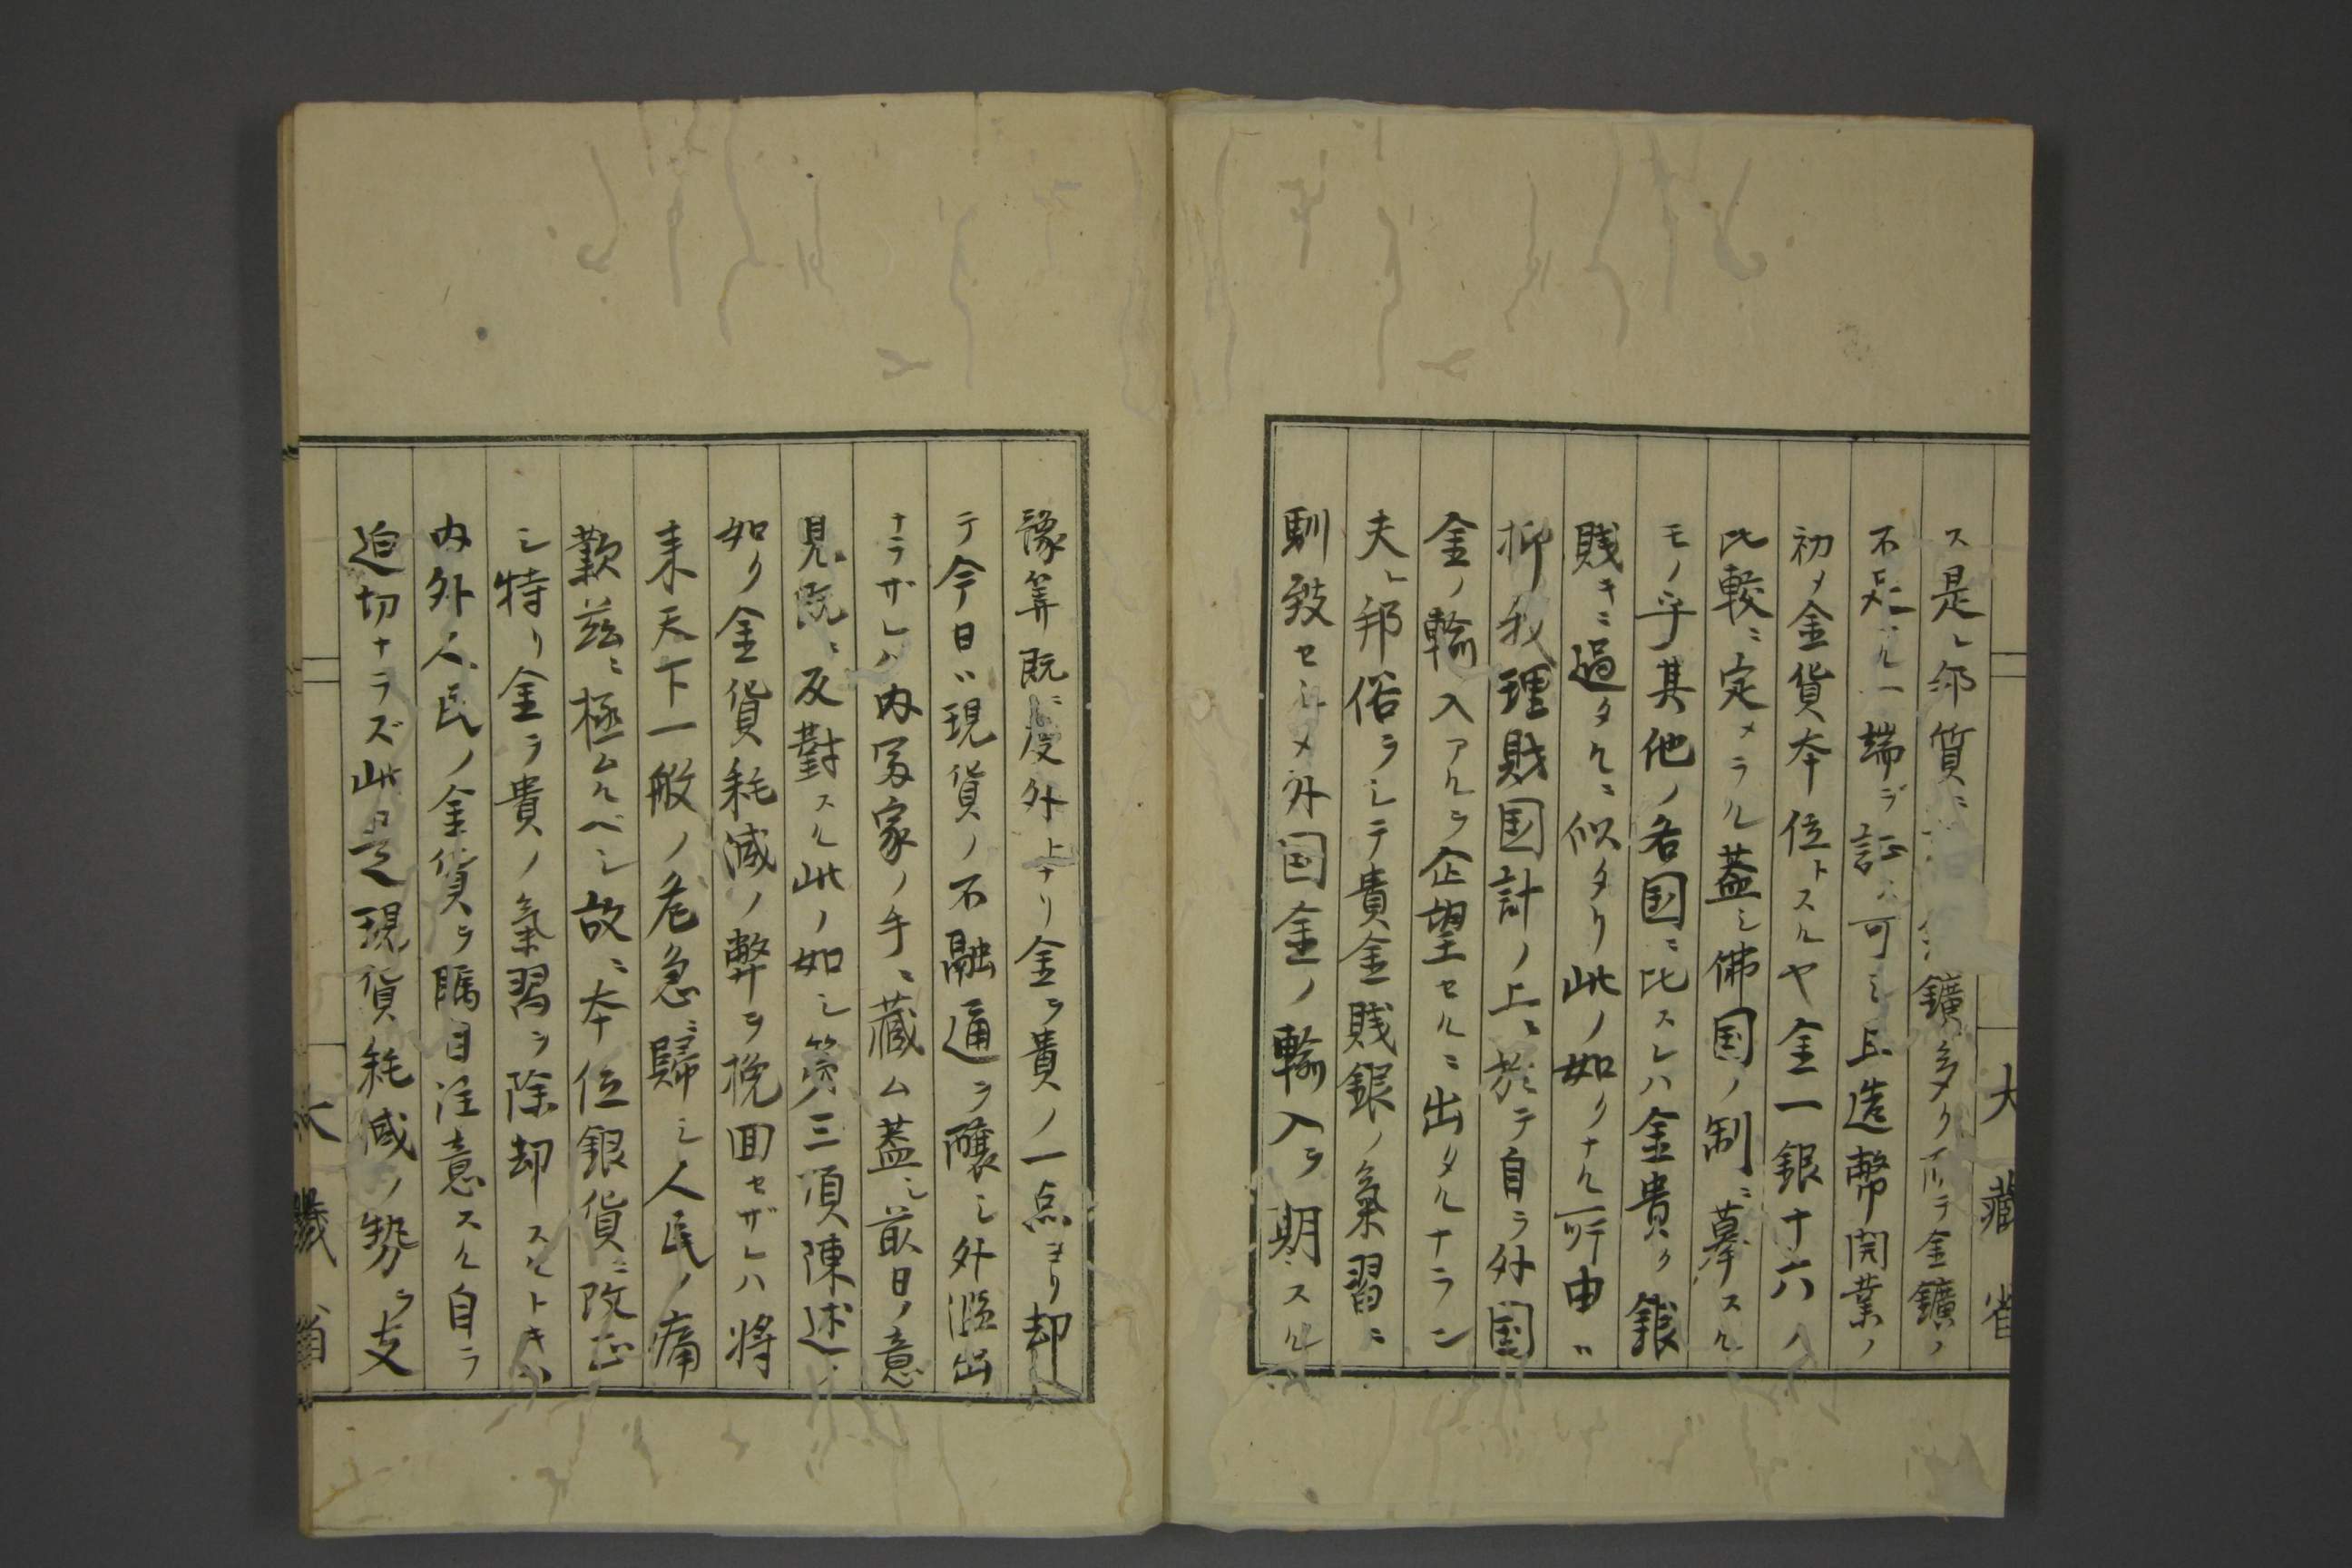 大藏省
ス是レ邦質ニ 鑛多ク而ラ金鑛ノ
不足ル一端ヲ証ス可シ且造幣開業ノ
初メ金貨本位トスルヤ金一銀十六ノ
比較ニ定メラル蓋シ佛国ノ制ニ摹スル
モノ乎其他ノ各国ニ比スレハ金貴ク銀
賎キニ過タルニ似タリ此ノ如クナル所由ハ
抑我理財国計ノ上ニ於テ自ラ外国
金ノ輸入アルヲ企望セルニ出タルナラン
夫レ邦俗ヲシテ貴金賎銀ノ氣習ニ
馴致セシメ外国金ノ輸入ヲ期スル
豫筭既ニ度外ナリ金ヲ貴ノ一点ヨリ却
テ今日ハ現貨ノ不融通ヲ醸シ外濫出
ナラザレハ内冨家ノ手ニ藏ム蓋シ最日ノ意
見既ニ反對スル此ノ如シ第三項陳述ノ
如ク金貨耗減ノ弊ヲ挽回セザレハ将
来天下一般ノ危急ニ歸シ人民ノ痛
歎茲ニ極ムルベシ故ニ本位銀貨ニ改正
シ特リ金ヲ貴ノ氣習ヲ除却スルトキハ
内外人民ノ金貨ヲ矚目注意スル自ラ
迫切ナラズ此是現貨耗減ノ勢ヲ支
大藏省